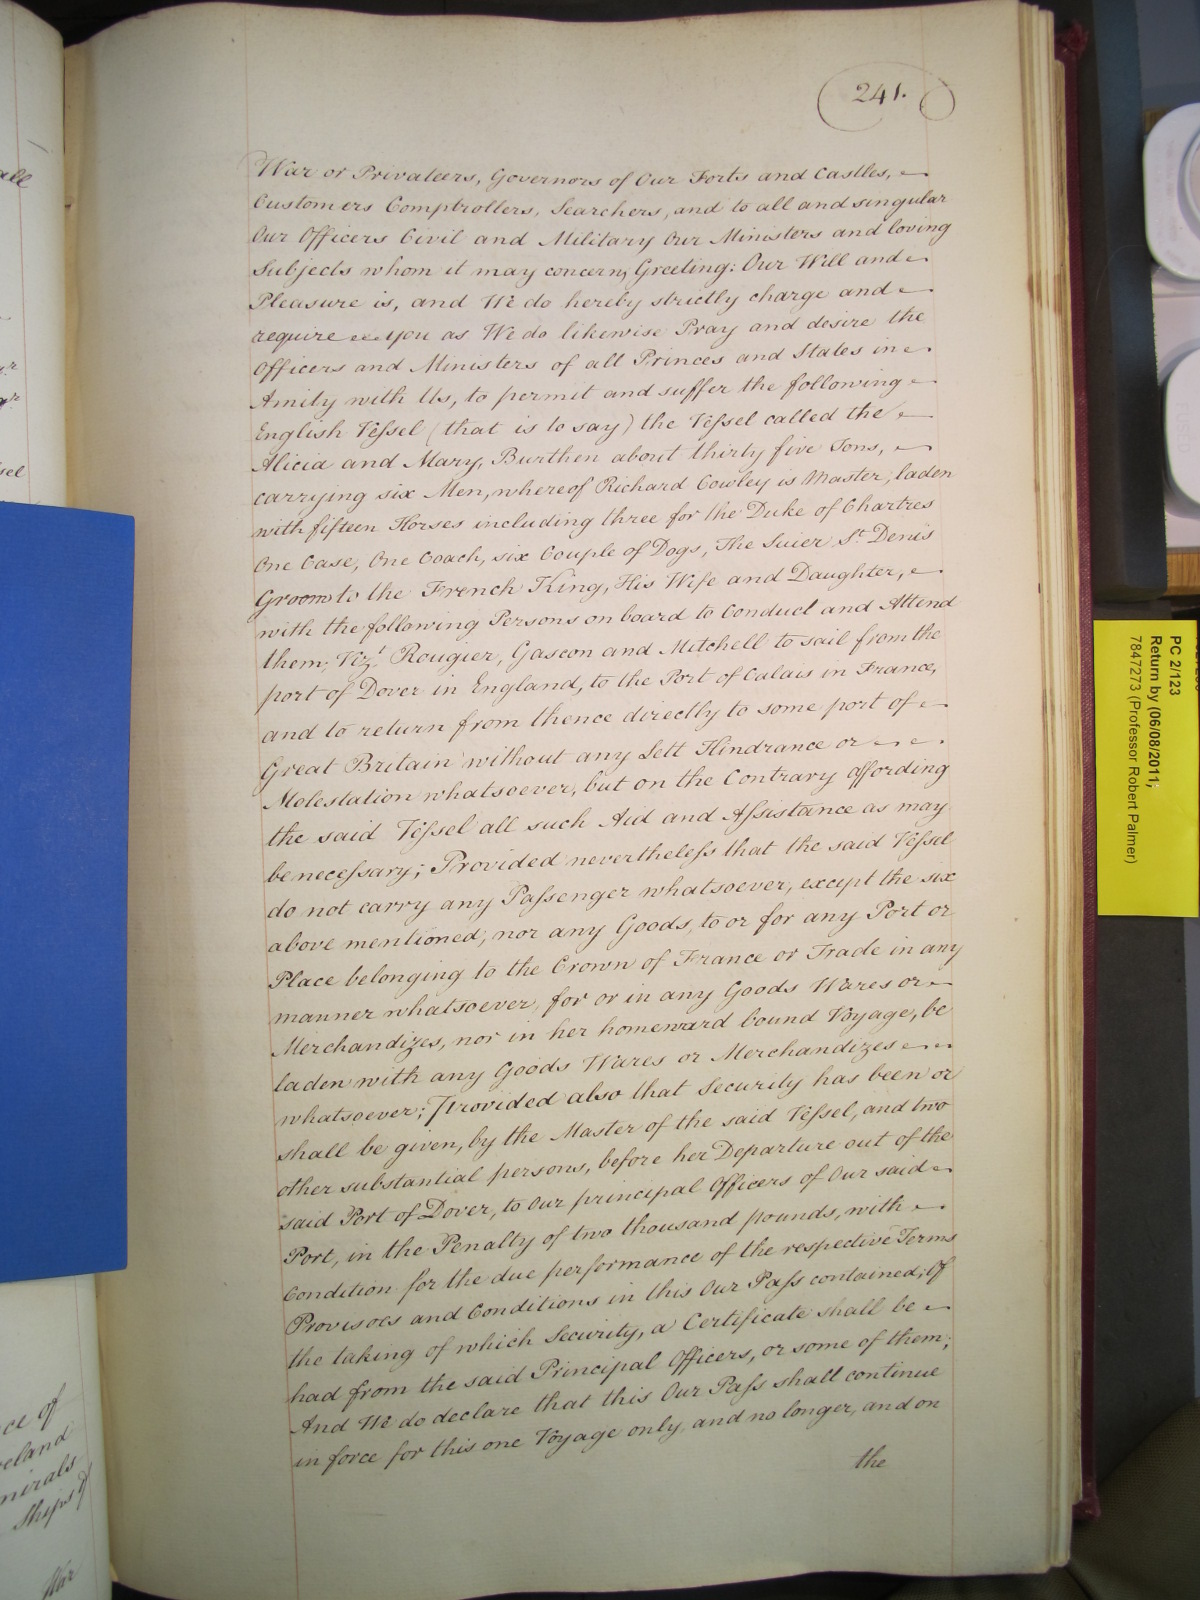 241.
War or Privateers, Governors of Our Forts and Castles,
Customers Comptrollers, Searchers, and to all and singular
Our Officers Civil and Military Our Ministers and loving
Subjects whom it may concern, Greeting: Our Will and
Pleasure is, and We do hereby strictly charge and
require you as We do likewise Pray and desire the
Officers and Ministers of all Princes and States in
Amity with Us, to permit and suffer the following
English Vessel (that is to say) the Vessel called the
Alicia and Mary, Burthen about thirty five Tons,
carrying six Men, whereof Richard Cowley is Master, laden
with fifteen Horses including three for the Duke of Chartres
One Case, One Coach, six Couple of Dogs, The Suier St. Denis
Groom to the French King, His Wife and Daughter,
with the following Persons on board to Conduct and Attend
them, Vizt. Rougier, Gascon and Mitchell to sail from the
port of Dover in England, to the Port of Calais in France,
and to return from thence directly to some port of
Great Britain without any Lett Hindrance or
Molestation whatsoever, but on the Contrary affording
the said Vessel all such Aid and Assistance as may
be necessary; Provided nevertheless that the said Vessel
do not carry any Passenger whatsoever, except the six
above mentioned, nor any Goods, to or for any Port or
Place belonging to the Crown of France or Trade in any
manner whatsoever, for or in any Goods Wares or
Merchandizes, nor in her homeward bound Voyage, be
laden with any Goods Wares or Merchandizes
whatsoever; Provided also that Security has been or
shall be given, by the Master of the said Vessel, and two
other substantial persons, before her Departure out of the
said Port of Dover, to Our principal Officers of Our said
Port, in the Penalty of two thousand pounds, with
Condition for the due performance of the respective Terms
Provisoes and Conditions in this Our Pass contained; Of
the taking of which Security, a Certificate shall be
had from the said Principal Officers, or some of them;
And We do declare that this Our Pass shall continue
in force for this one Voyage only, and no longer, and on
the
PC 2/123
Return by (06/08/2011;
7847273 (Professor Robert Palmer)
ce of
Ships of
War